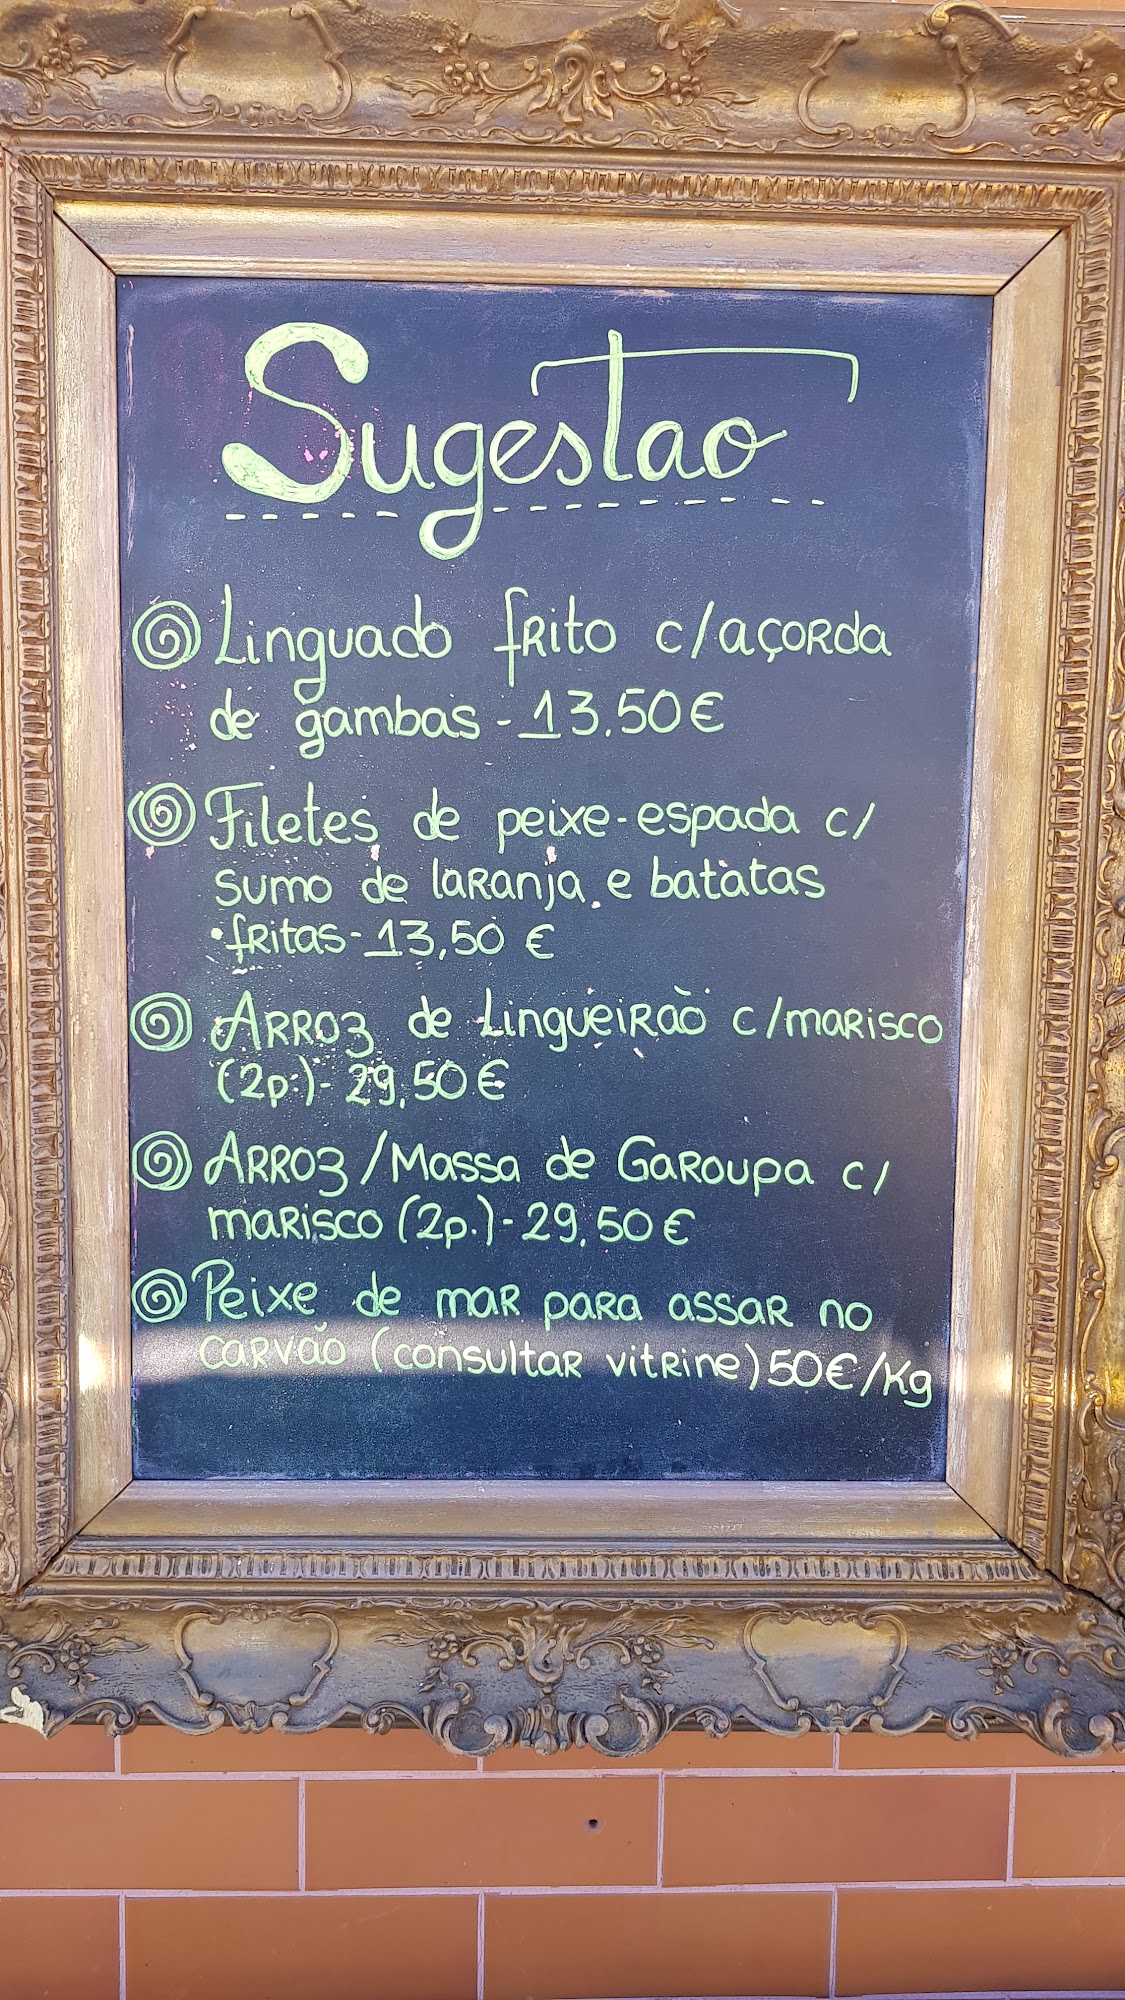 Sugestão
Linguado frito c/açorda
de gambas - 13.50€
Filetes de peixe-espada c/
sumo de laranja e batatas
fritas - 13,50 €
Arroz de Lingueirão c/marisco
(2p.) - 29,50€
Arroz/Massa de Garoupa c/
marisco (2p.) - 29,50€
Peixe de mar para assar no
carvão (consultar vitrine) 50€/Kg